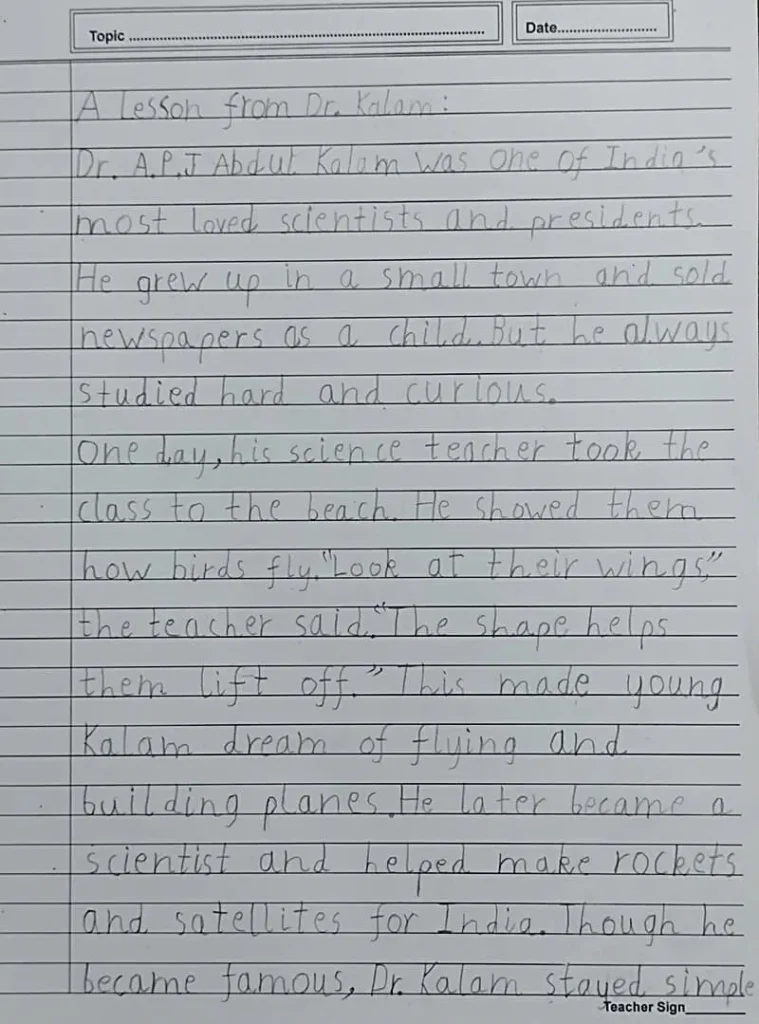 Topic ........................................ Date........................
A Lesson from Dr. Kalam:
Dr. A.P.J Abdul Kalam was one of India's
most loved scientists and presidents.
He grew up in a small town and sold
newspapers as a child. But he always
studied hard and curious.
One day, his science teacher took the
class to the beach. He showed them
how birds fly. "Look at their wings,"
the teacher said. "The shape helps
them lift off." This made young
Kalam dream of flying and
building planes. He later became a
scientist and helped make rockets
and satellites for India. Though he
became famous, Dr. Kalam stayed simple
Teacher Sign________